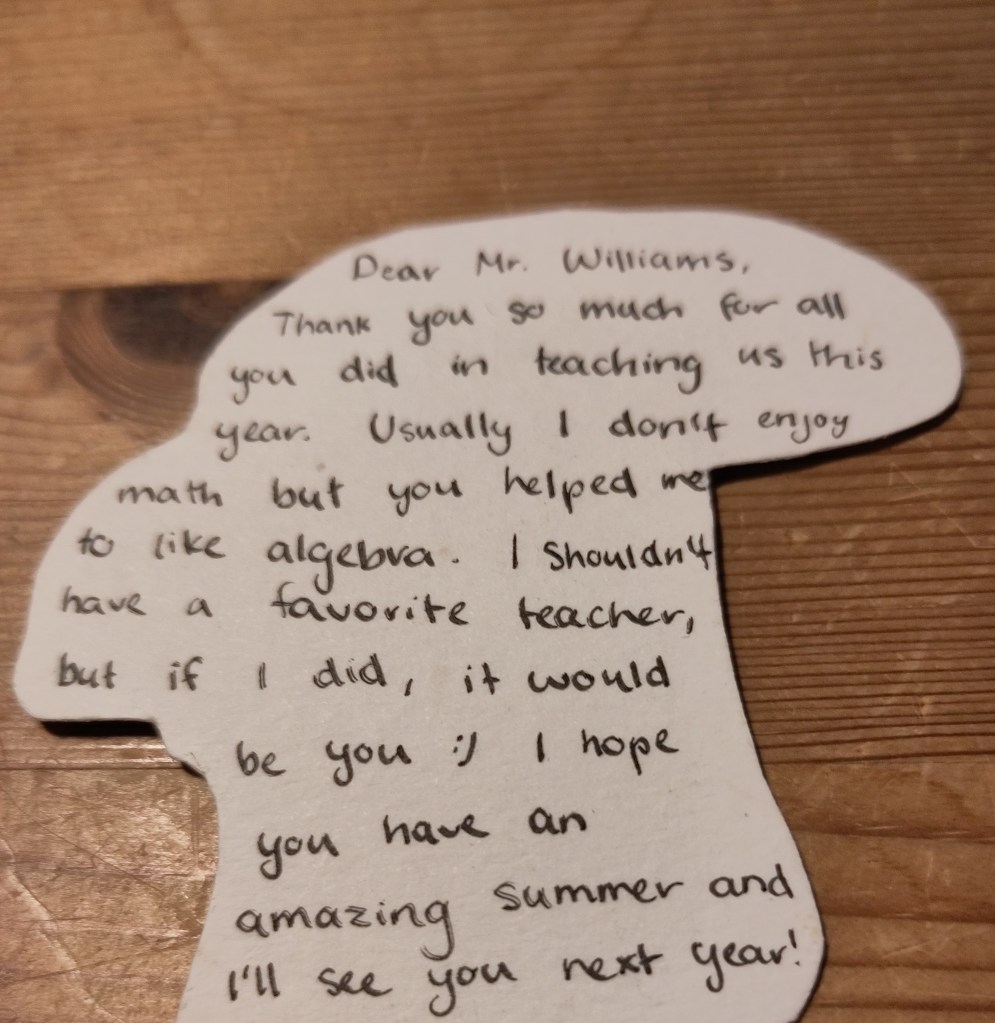 Dear Mr. Williams,
Thank you so much for all
you did in teaching us this
year. Usually I don't enjoy
math but you helped me
to like algebra. I shouldn't
have a favorite teacher,
but if I did, it would
be you :) I hope
you have an
amazing summer and
I'll see you next year!